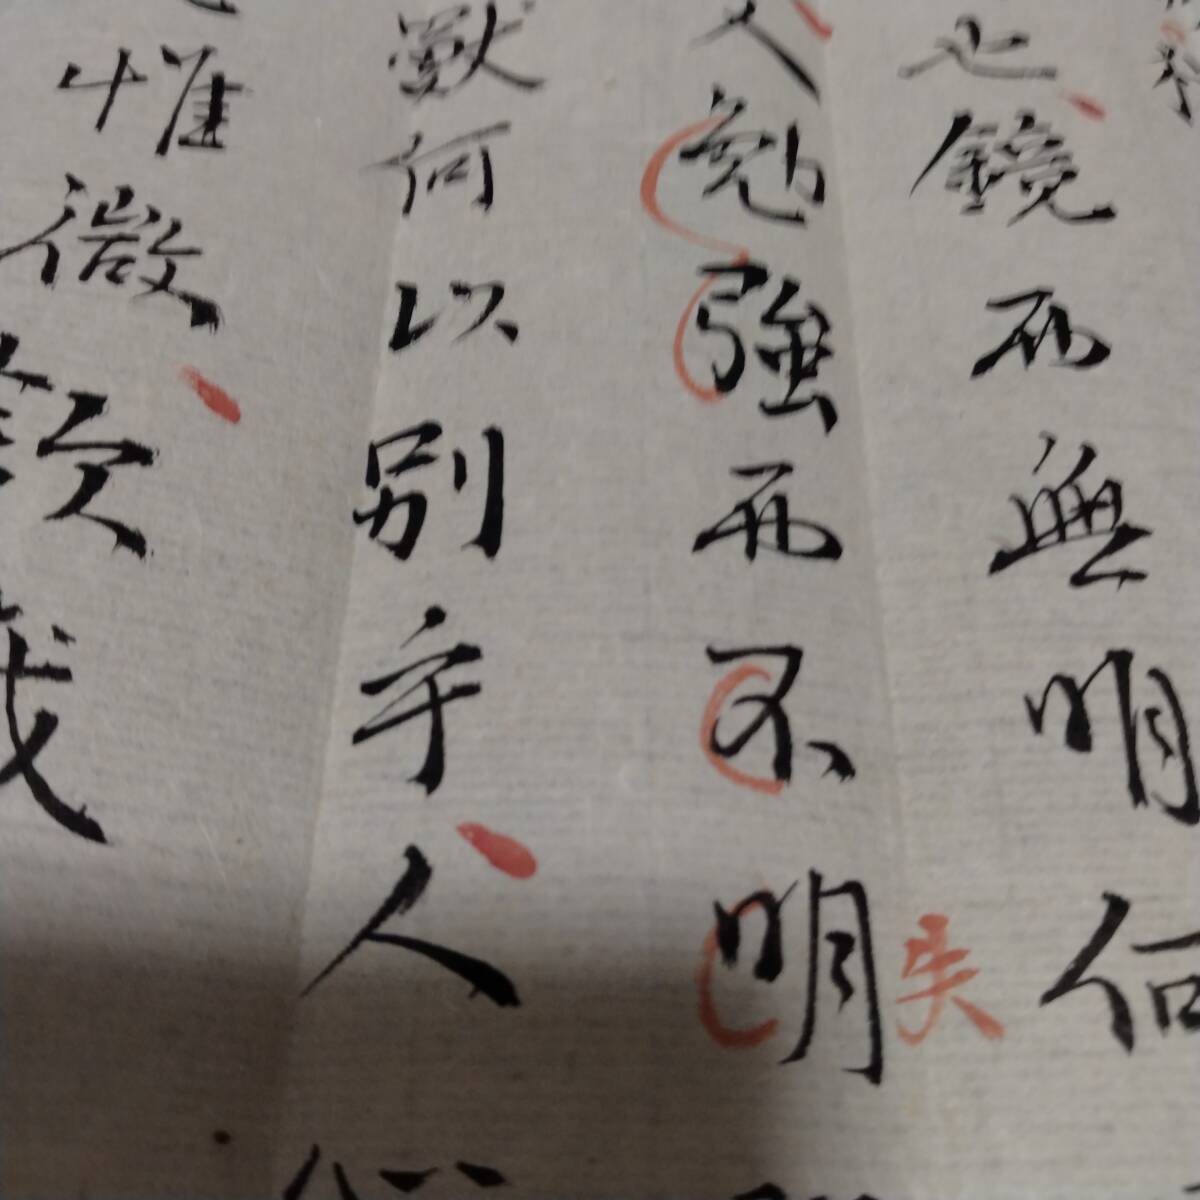 也鏡而無明何
人勉強而不明
失
獸何以別乎人
惟微